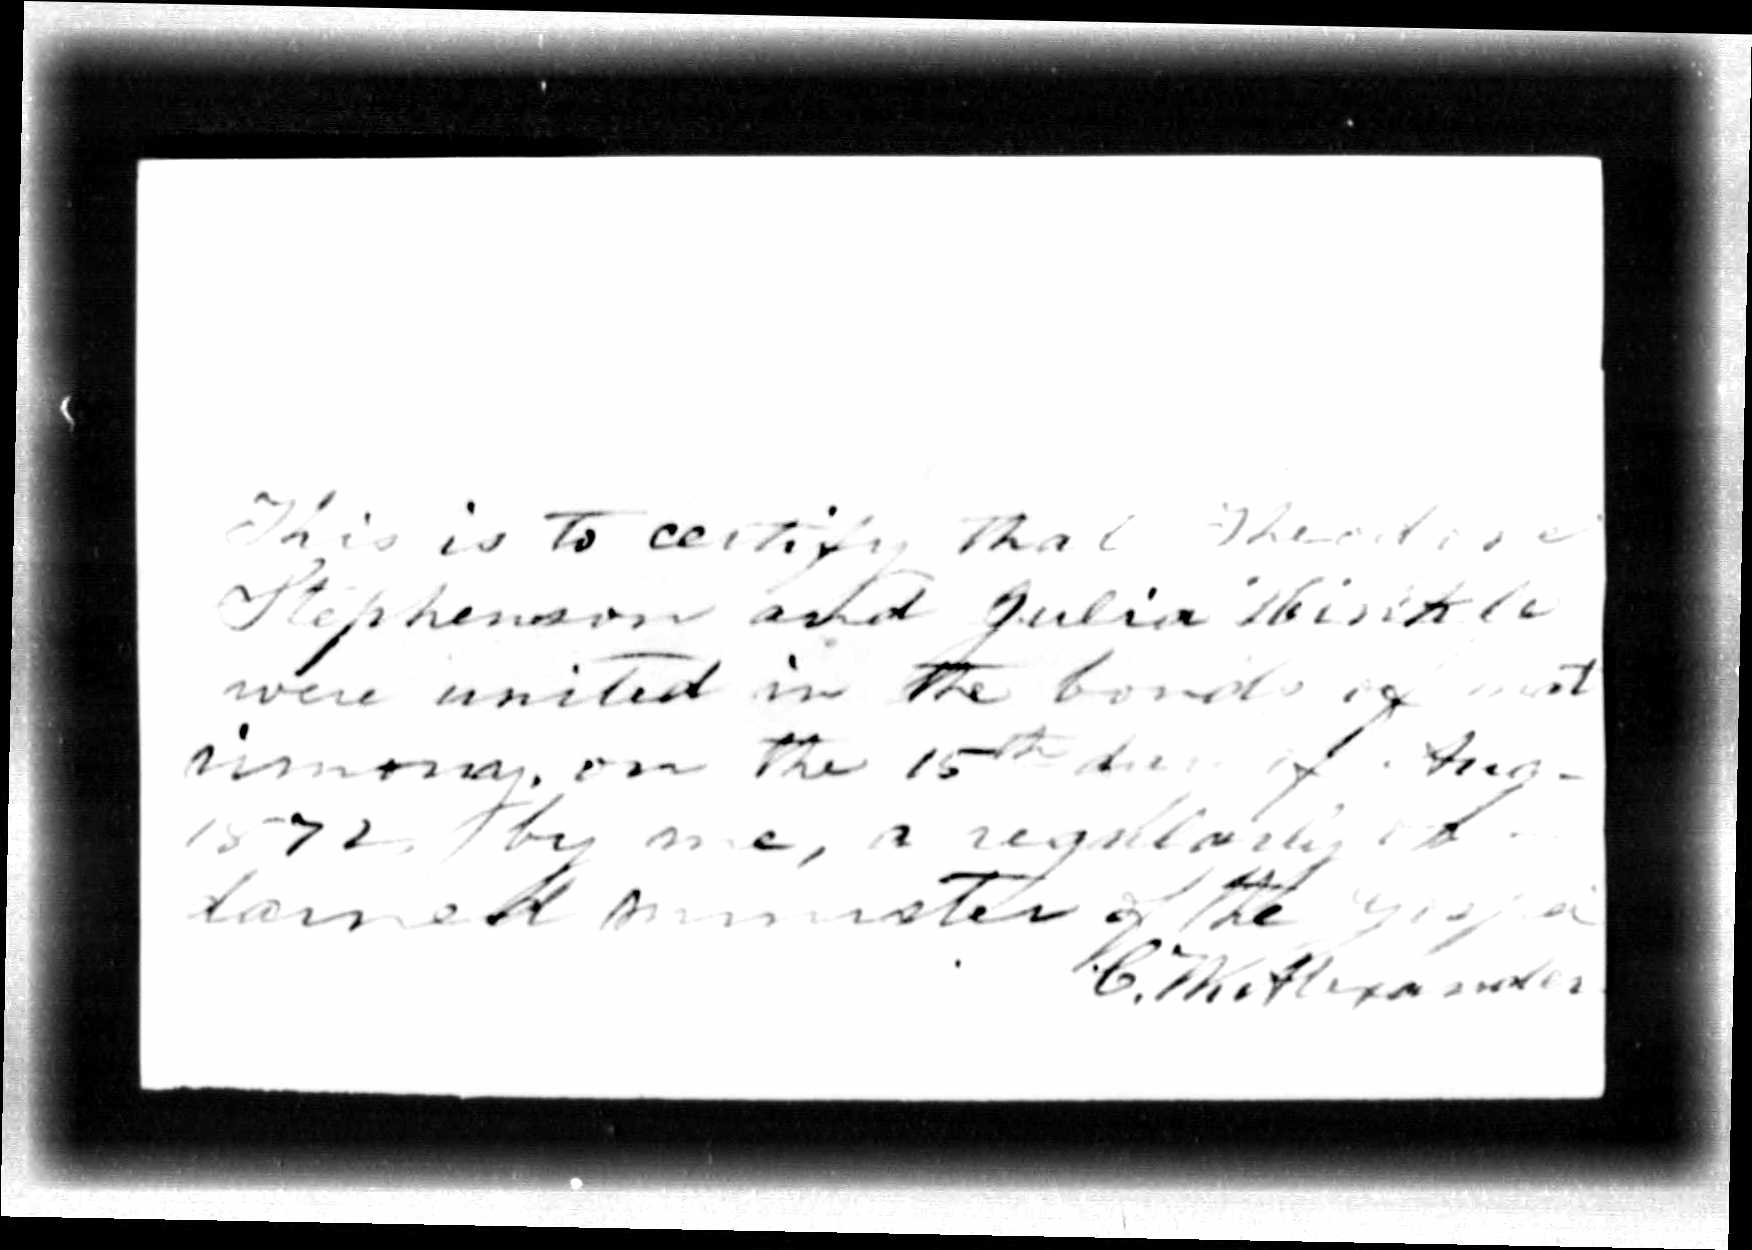 This is to certify that Theodore
Stephenson and Julia Hinkle
were united in the bonds of mat
rimony, on the 15th day of Aug-
1872, by me, a regularly or-
dained minister of the Gospel
C. M. Alexander